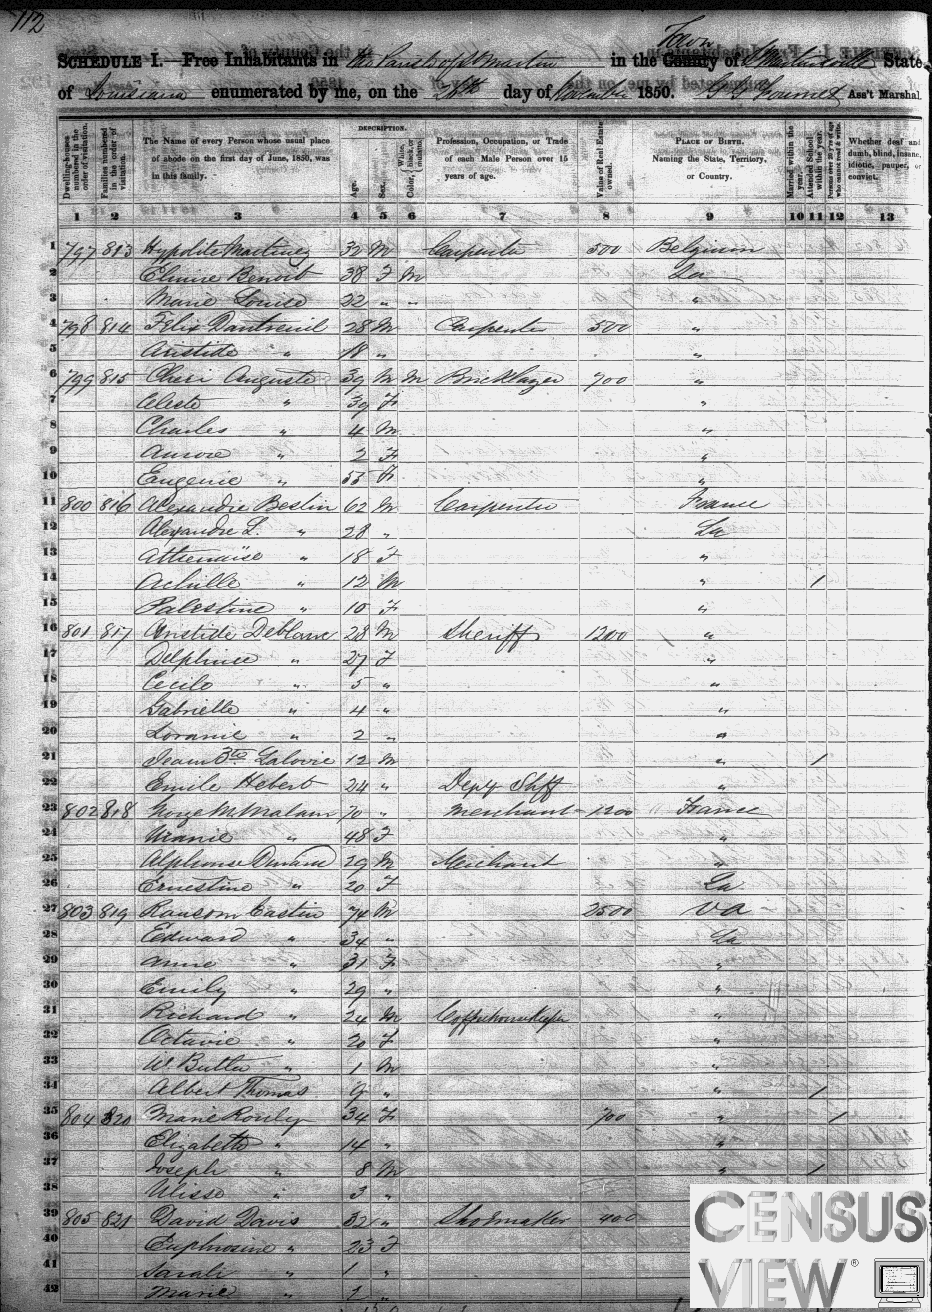 112
SCHEDULE I.—Free Inhabitants in the Parish of St Martin in the County of Town St Martinsville State
of Louisiana enumerated by me, on the 26th day of November 1850. Ass't Marshal.
Dwelling-houses numbered in the order of visitation.
Families numbered in the order of visitation.
The Name of every Person whose usual place of abode on the first day of June, 1850, was in this family.
DESCRIPTION.
Age.
Sex.
Color, White, black, or mulatto.
Profession, Occupation, or Trade of each Male Person over 15 years of age.
Value of Real Estate owned.
PLACE OF BIRTH. Naming the State, Territory, or Country.
Married within the year.
Attended School within the year.
Persons over 20 y'rs of age who cannot read & write.
Whether deaf and dumb, blind, insane, idiotic, pauper, or convict.
1 2 3 4 5 6 7 8 9 10 11 12 13
1 797 813 Hypolite Martinez 32 M Carpenter 500 Belgium
2 Elmire Benoit 38 F M La
3 Marie Louise 22 " " "
4 798 814 Felix Dautreuil 28 M Carpenter 500 "
5 Aristide " 18 " "
6 799 815 Cheri Auguste 39 M M Bricklayer 700 "
7 Celeste " 39 F "
8 Charles " 4 M "
9 Aurore " 2 F "
10 Eugenie " 55 F "
11 800 816 Alexandre Beslin 62 M Carpenter France
12 Alexandre L. " 28 " La
13 Attenaise " 18 F "
14 Achille " 12 M " 1
15 Palestine " 10 F "
16 801 817 Aristide Deblanc 28 M Sheriff 1200 "
17 Delphine " 27 F "
18 Cecile " 5 " "
19 Gabrielle " 4 " "
20 Loranie " 2 " "
21 Jean Bte 12 M " 1
22 Emile Hebert 24 " Depy Shff "
23 802 818 70 " Merchant 1200 France
24 Uranie " 48 F "
25 Alphonse 29 M Merchant "
26 Ernestine " 20 F La
27 803 819 Ransom Eastin 74 M 2500 Va
28 Edward " 34 " La
29 Anne " 31 F "
30 Emily " 29 " "
31 Richard " 24 M Coffeehousekeeper "
32 Octavie " 20 F "
33 W. Butler " 1 M "
34 Albert Thomas 9 " " 1
35 804 820 Marie Rouly 34 F 700 " 1
36 Elizabeth " 14 " "
37 Joseph " 8 M " 1
38 Ulisse " 3 "
39 805 821 David Davis 32 " Shoemaker 400
40 Euphrosine " 23 F
41 Sarah " 1 "
42 Marie "
CENSUS
VIEW®